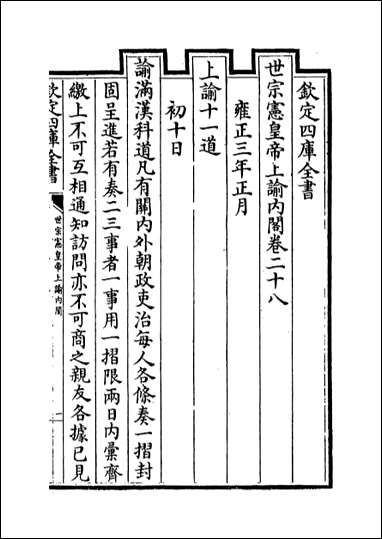 欽定四庫全書
世宗憲皇帝上諭內閣卷二十八
雍正三年正月
上諭十一道
初十日
諭滿漢科道凡有關內外朝政吏治每人各條奏一摺封
固呈進若有奏二三事者一事用一摺限兩日內彙齊
繳上不可互相通知訪問亦不可商之親友各據已見
欽定四庫全書
世宗憲皇帝上諭內閣